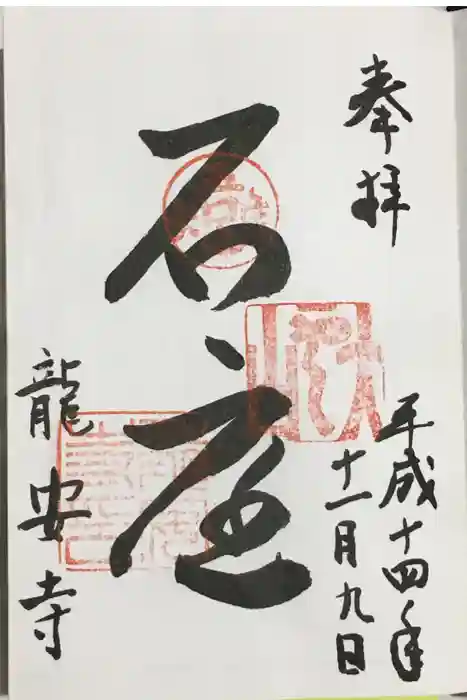 奉拝
平成十四年
十一月九日
石庭
龍安寺